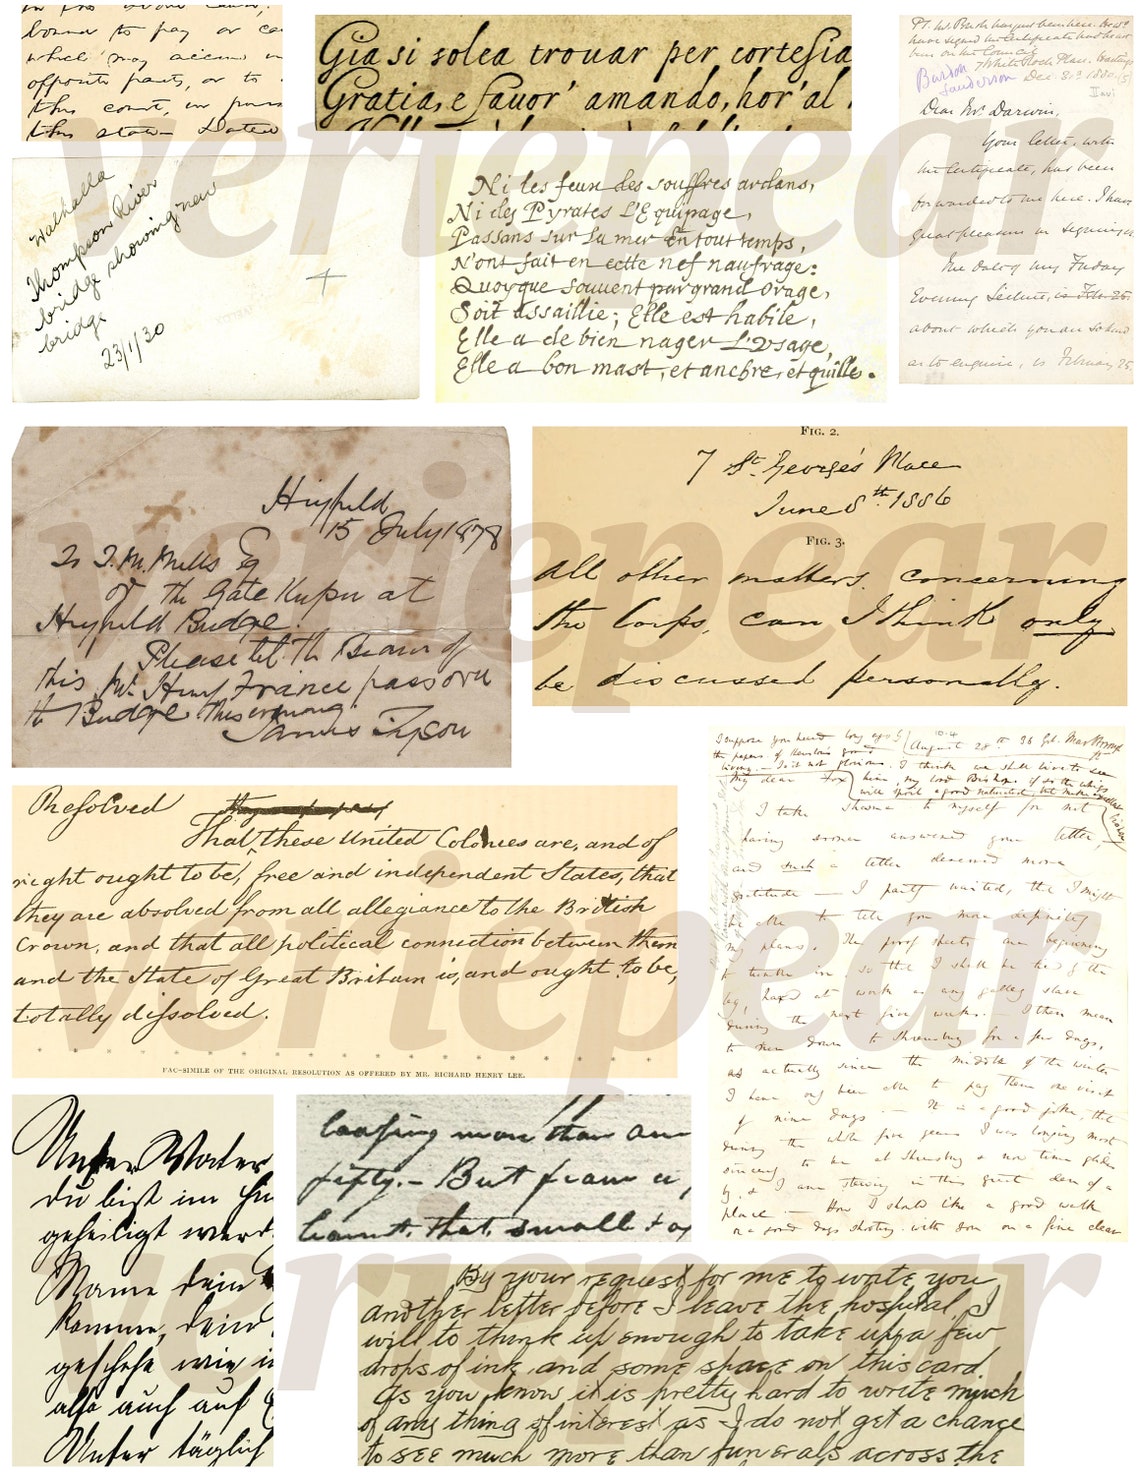 bound to pay or
which may accrue
opposite party, or to
this court, in
this state
Gia si solea trouar per cortesia
Gratia, e fauor' amando, hor'al
Burdon
Sanderson
Dec. 31st 1880
Dear Mr. Darwin,
Your letter, with
the Certificate, has been
forwarded to me here. I have
great pleasure in signing
The date of my Friday
Evening Lecture, is Feb. 25.
about which you are so kind
as to enquire, is February 25.
Walhalla
Thompson River
bridge showing new
bridge
23/1/30
Ni les feux des souffres ardans,
Ni des Pyrates L'Equipage,
Passans sur La mer En tout temps,
N'ont fait en cette nef naufrage:
Quoyque souvent par grand Orage,
Soit assaillie; Elle est habile,
Elle a de bien nager L'Usage,
Elle a bon mast, et anchre, et quille.
Heyfield
15 July 1878
To T. M. Mills Esq
of the Gate Keeper at
Heyfield Bridge.
Please let the Bearer of
this Mr. Henry France pass over
the Bridge this evening.
James Tyson
FIG. 2.
7 St. George's Place
June 8th. 1886
FIG. 3.
All other matters, concerning
the Corps, can I think only
be discussed personally.
Resolved
That these United Colonies are, and of
right ought to be, free and independent States, that
they are absolved from all allegiance to the British
Crown, and that all political connection between them
and the State of Great Britain is, and ought to be,
totally dissolved.
FAC-SIMILE OF THE ORIGINAL RESOLUTION AS OFFERED BY MR. RICHARD HENRY LEE.
I suppose you heard long ago
the papers of Henslow's good
living. — Is it not glorious. I think we shall live to see
him, my lord Bishop. if so the whigs
will spoil a good naturalist, but make
August 28th 36 Gt. Marlbro'
My dear Fox
I take shame to myself for not
having sooner answered your letter,
and such a letter deserved more
gratitude — I partly waited, that I might
be able to tell you more definitely
my plans. The proof sheets are beginning
to tumble in. so that I shall be tied by the
leg, & hard at work as any galley slave
during the next five weeks. — I then mean
to run down to Shrewsbury for a few days,
as actually since the middle of the winter
I have only been able to pay them one visit
of nine days. — It is a good joke, that
during the whole five years I was longing most
sincerely to be at Shrewsbury & now time glides
by, & I am stewing in this great den of a
place — How I should like a good walk
or a good days shooting with you on a fine clear
Unser Vater
du bist im
geheiligt werd
Name dein
komme, dein
geschehe wie i
also auch auf
Unser täglich
loosing more than one
fifty. — But from a
learnt, that small
By your request for me to write you
another letter before I leave the hospital, I
will to think up enough to take up a few
drops of ink and some space on this card.
As you know it is pretty hard to write much
of any thing of interest as I do not get a chance
to see much more than funerals across the
veriepear
veriepear
veriepear
veriepear